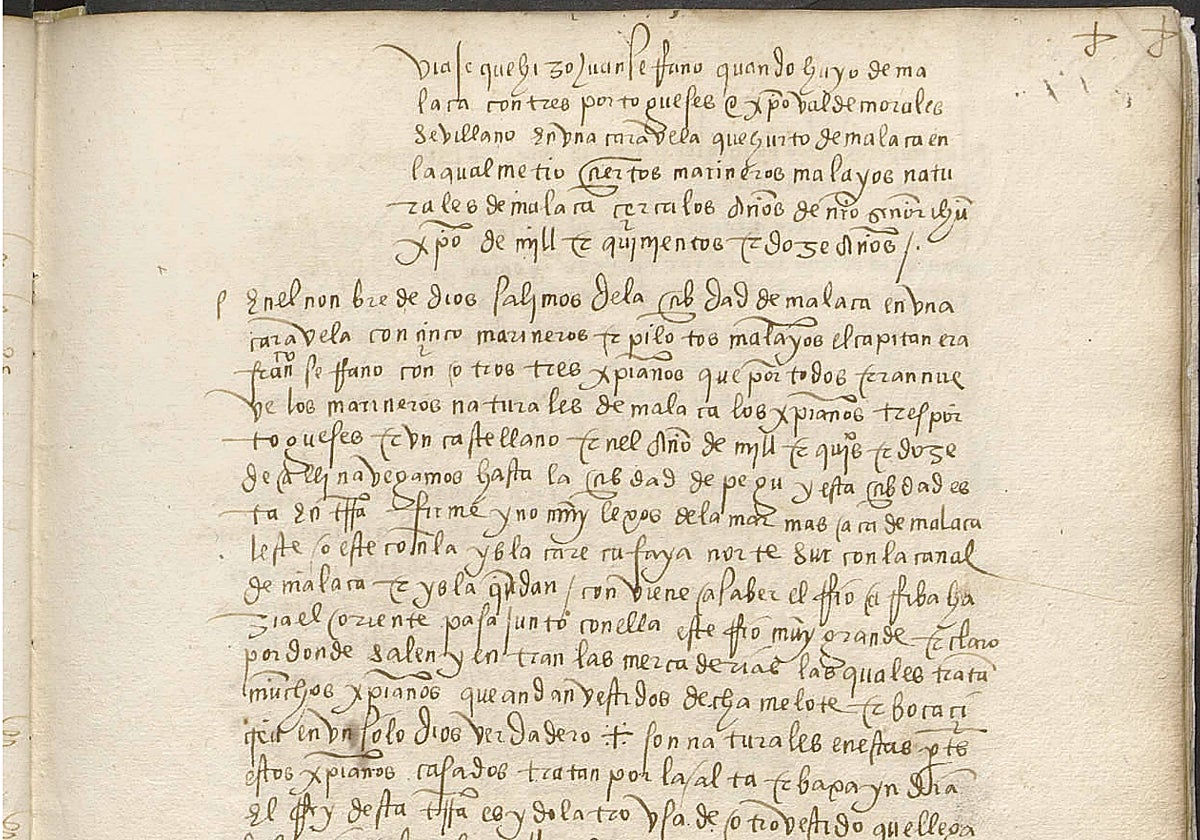 viaje que hizo Juan Serrano quando huyo de ma
laca con tres portogueses e xpo val de morales
sevillano en una caravela que hurto de malaca en
la qual metio çiertos marineros malayos natu
rales de malaca çerca los años de nro señor ihu
xpo de mill & quinientos & doze años /.
En el nonbre de dios salimos de la cibdad de malaca en una
caravela con çinco marineros & pilotos malayos el capitan era
franco serrano con otros tres xpianos que por todos eran nue
ve los marineros naturales de malaca los xpianos tres por
togueses & un castellano en el año de mill & quis & doze
de alli navegamos hasta la cibdad de pegu y esta cibdad es
ta en trra firme y no muy lexos de la mar mas aca de malaca
leste oeste con la ysla norte sur con la canal
de malaca & ysla / conviene a saber el rrio a rriba ha
zia el oriente pasa junto con ella este rrio muy grande & claro
por donde salen y entran las mercaderias las quales tratan
muchos xpianos que andan vestidos de chamelote & bocaçi
en un solo dios verdadero son naturales en estas ptes
estos xpianos casados tratan por la alta & baxa yndia
El rrey desta trra es ydolatro usa de otro vestido que llega